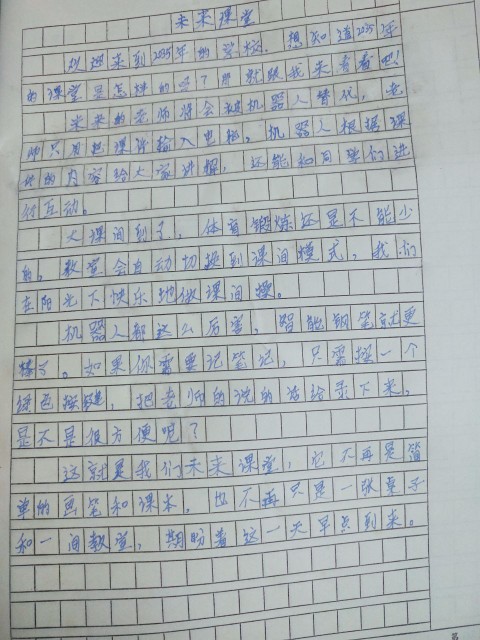 未来课堂
欢迎来到2035年的学校。想知道2035年
的课堂是怎样的吗？那就跟我来看看吧！
未来的老师将会被机器人替代，老
师只用把课件输入电脑，机器人根据课
件的内容给大家讲解，还能和同学们进
行互动。
大课间到了，体育锻炼还是不能少
的。教室会自动切换到课间模式，我们
在阳光下快乐地做课间操。
机器人都这么厉害，智能钢笔就更
棒了。如果你需要记笔记，只需按一个
绿色按键，把老师的说的话给录下来，
是不是很方便呢？
这就是我们未来课堂，它不再是简
单的画笔和课本，也不再只是一张桌子
和一间教室，期盼着这一天早点到来。